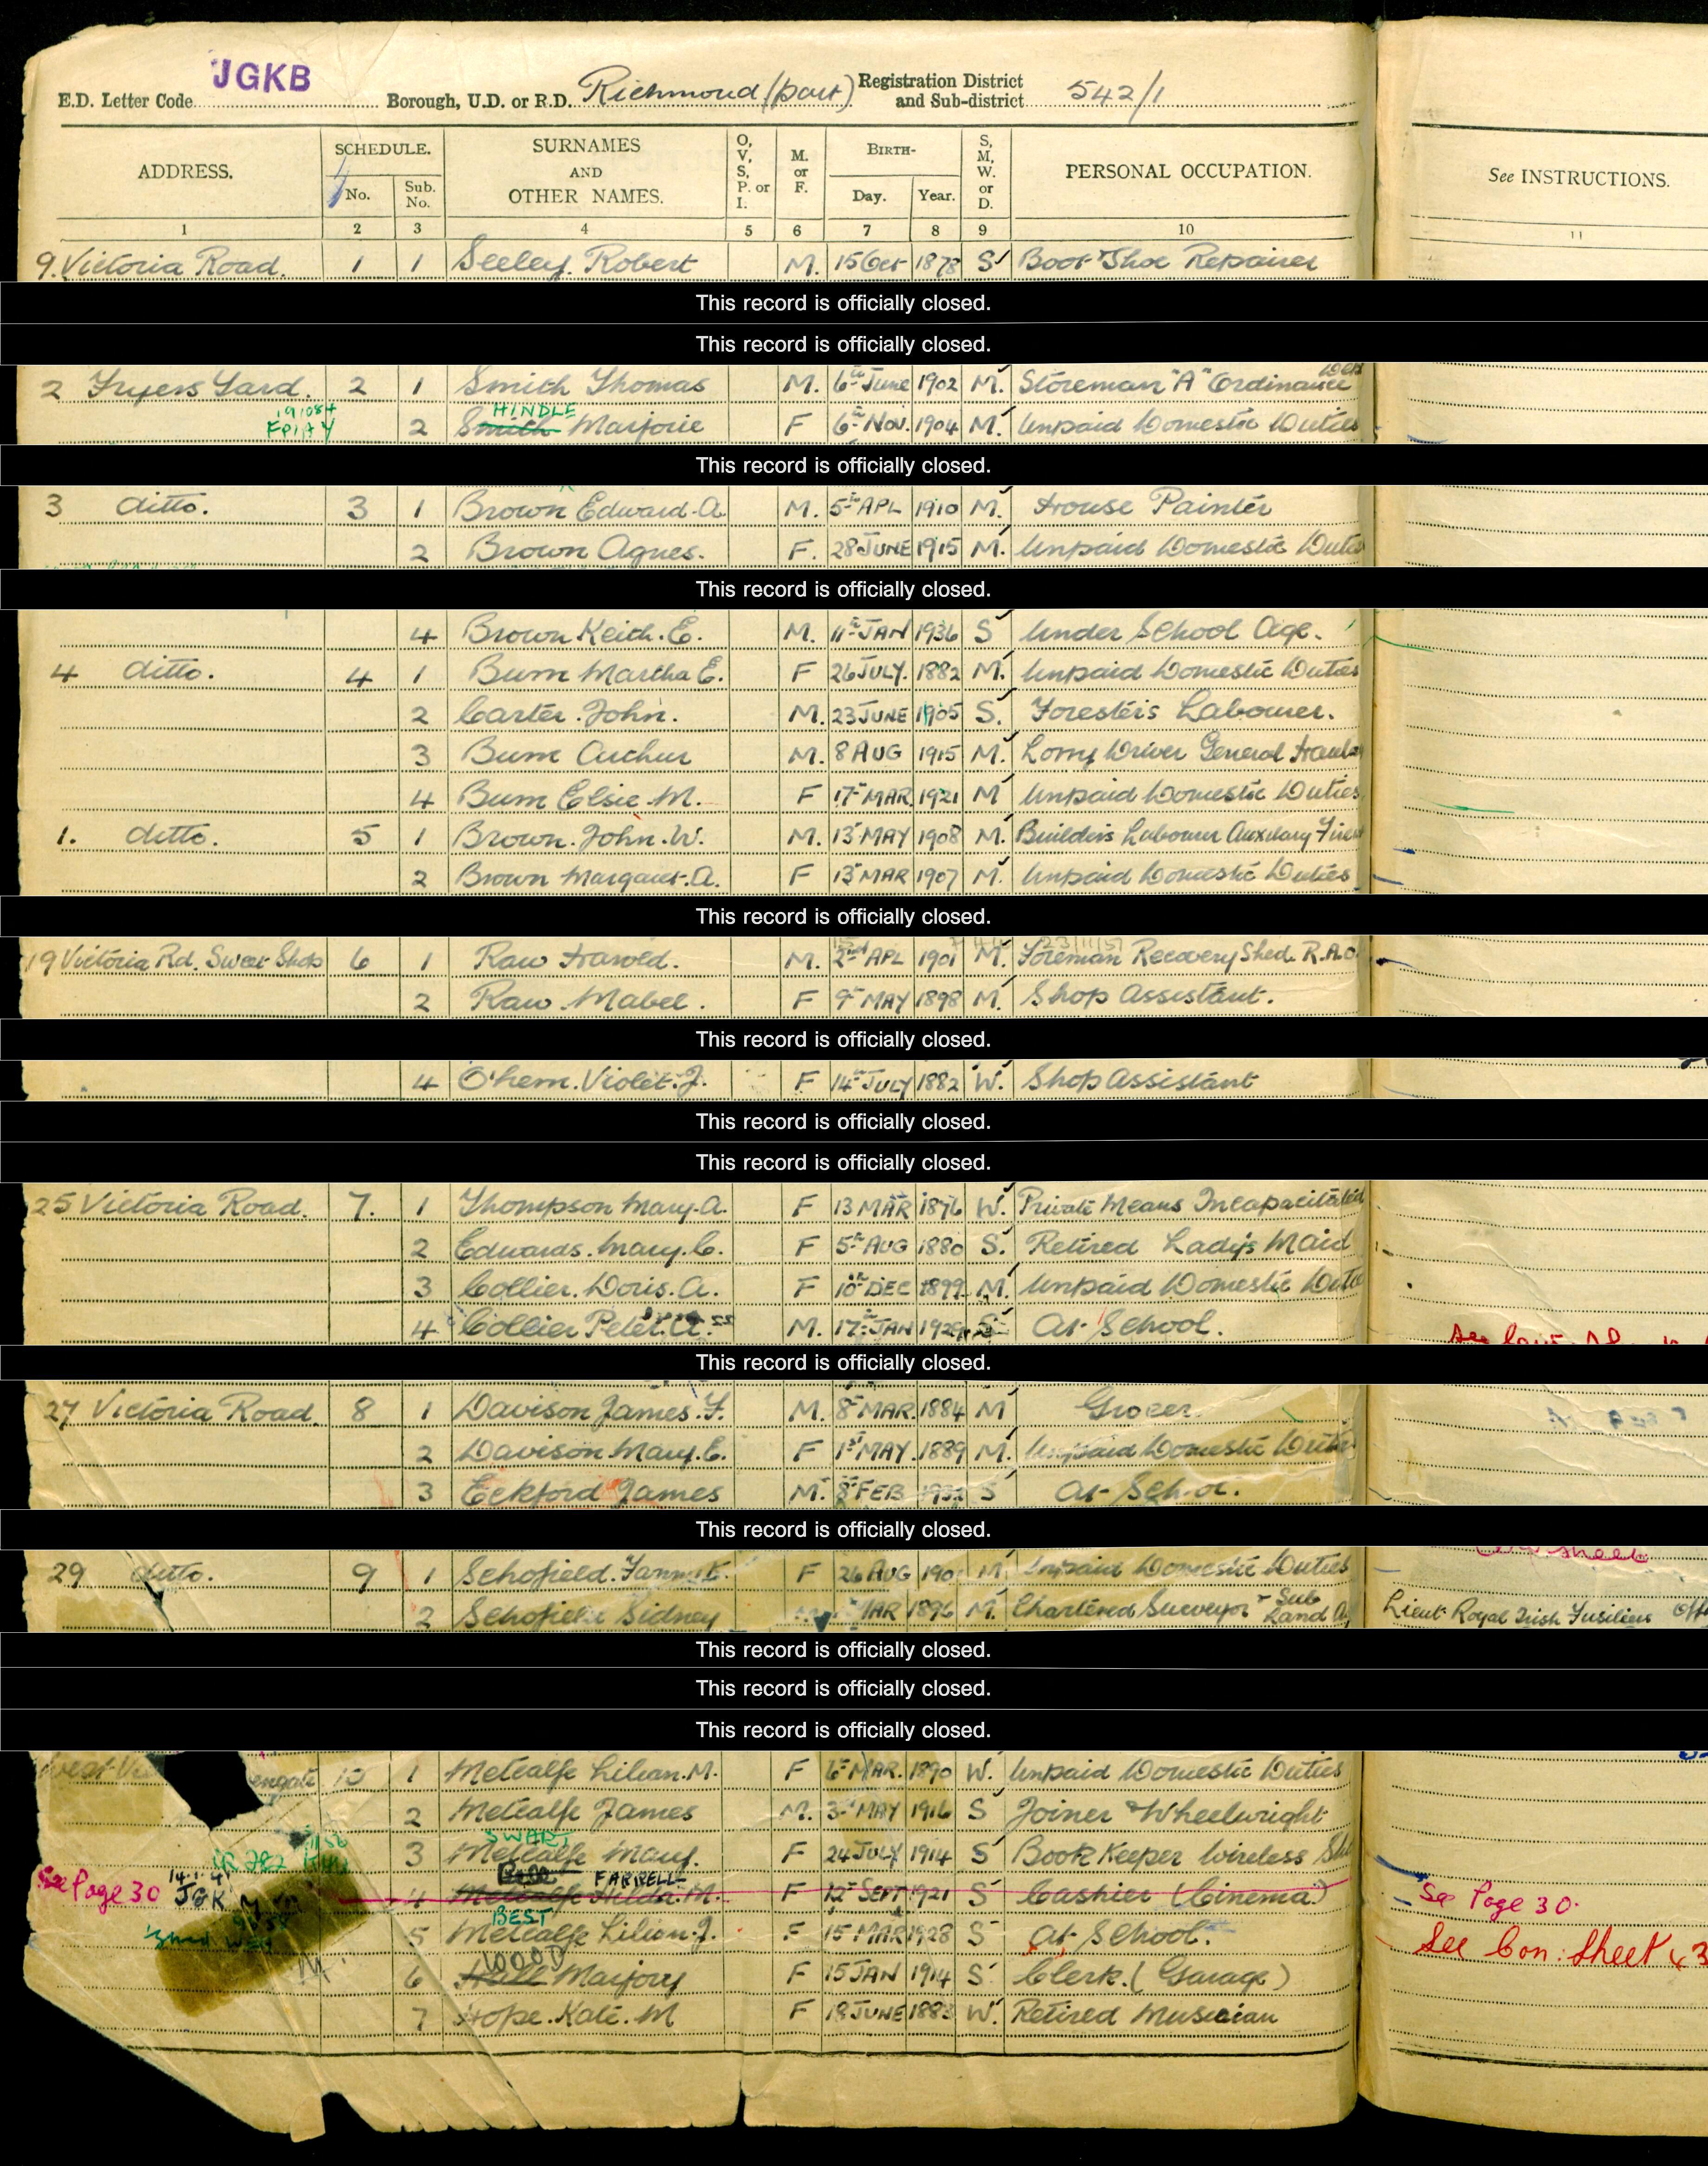 JGKB
E.D. Letter Code Borough, U.D. or R.D. Richmond (part) Registration District and Sub-district 542/1
ADDRESS. SCHEDULE. No. Sub. No. SURNAMES AND OTHER NAMES. O, V, S, P. or I. M. or F. BIRTH- Day. Year. S, M, W. or D. PERSONAL OCCUPATION. See INSTRUCTIONS.
1 2 3 4 5 6 7 8 9 10 11
9. Victoria Road. 1 1 Seeley. Robert M. 15 Oct 1878 S Boot Shoe Repairer
This record is officially closed.
This record is officially closed.
2 Fryers Yard. 2 1 Smith Thomas M. 6th June 1902 M. Storeman "A" Ordinance
HINDLE
2 Smith Marjorie F 6th Nov. 1904 M. Unpaid Domestic Duties
This record is officially closed.
3 ditto. 3 1 Brown Edward. A M. 5th APL 1910 M. House Painter
2 Brown Agnes. F. 28 JUNE 1915 M. Unpaid Domestic Duties
This record is officially closed.
4 Brown Keith. E. M. 11th JAN 1936 S Under School Age.
4 ditto. 4 1 Burn Martha E. F 26 JULY. 1882 M. Unpaid Domestic Duties
2 Carter. John. M. 23 JUNE 1905 S. Foresters Labourer.
3 Burn Arthur M. 8 AUG 1915 M. Lorry Driver General
4 Burn Elsie M. F 17th MAR 1921 M Unpaid Domestic Duties
1. ditto. 5 1 Brown. John. W. M. 13 MAY 1908 M. Builders Labourer Auxilary Fire
2 Brown Margaret. A. F 13 MAR 1907 M. Unpaid Domestic Duties
This record is officially closed.
19 Victoria Rd. Sweet Shop 6 1 Raw Harold. M. 2nd APL 1901 M. Foreman Recovery Shed. R.A.O.
2 Raw Mabel. F 9th MAY 1898 M. Shop Assistant.
This record is officially closed.
4 O'hern. Violet. J. F 14th JULY 1882 W. Shop Assistant
This record is officially closed.
This record is officially closed.
25 Victoria Road. 7. 1 Thompson Mary. A. F 13 MAR 1876 W. Private Means Incapacitated
2 Edwards. Mary. C. F 5th AUG 1880 S. Retired Ladys Maid
3 Collier. Doris. A. F 10th DEC 1899 M. Unpaid Domestic Duties
4 Collier Peter. A. M. 17th JAN 1929 S At School.
This record is officially closed.
27 Victoria Road. 8 1 Davison James. F. M. 8th MAR. 1884 M Grocer.
2 Davison Mary. C. F 1st MAY. 1889 M. Unpaid Domestic Duties
3 Eckford James M. 8th FEB S At School.
This record is officially closed.
sheet
29 ditto. 9 1 Schofield. F 26 AUG M Unpaid Domestic Duties
2 Schofield Sidney MAR 1896 M. Chartered Surveyor & Sub Land Lieut Royal Irish Fusiliers
This record is officially closed.
This record is officially closed.
This record is officially closed.
10 1 Metcalfe Lilian. M. F 6th MAR. 1890 W. Unpaid Domestic Duties
2 Metcalfe James M. 3rd MAY 1916 S Joiner & Wheelwright
SWART
3 Metcalfe Mary. F 24 JULY 1914 S Book Keeper Wireless
FARRELL
See Page 30 JGK 4 Metcalfe Hilda. M. F 12th SEPT 1921 S Cashier (Cinema) See Page 30.
BEST
5 Metcalfe Lilian. J. F 15 MAR 1928 S At School. See Con: Sheet
WOOD
6 Marjory F 15 JAN 1914 S Clerk. (Garage)
7 Hope. Kate. M F 18 JUNE 1883 W. Retired Musician